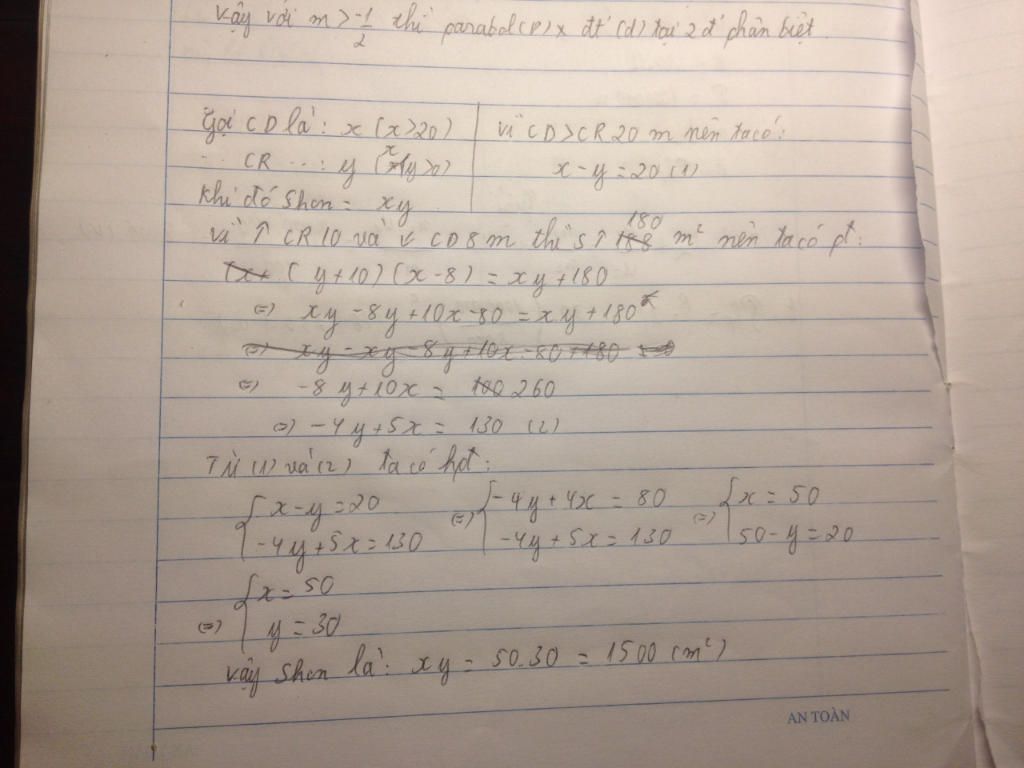 Vậy với m > -1/2 thì parabol (P) x đt (d) tại 2 đ' phân biệt.
Gọi CD là: x (x>20)
.. CR ...: y (x>y>0)
Khi đó Shcn = xy
Vì CD>CR 20 m nên ta có:
x-y=20 (1)
Vì ↑ CR 10 và ↓ CD 8 m thì S ↑ 180 m² nên ta có pt:
(y+10)(x-8) = xy+180
(=) xy -8y+10x-80 = xy+180
(=) xy-xy-8y+10x-80+180
(=) -8y+10x = 260
(=) -4y+5x = 130 (2)
Từ (1) và (2) ta có hpt:
{x-y=20 (=) {-4y+4x = 80 (=) {x = 50
{-4y+5x=130 {-4y+5x=130 {50-y=20
(=) {x=50
{y=30
Vậy Shcn là: xy = 50.30 = 1500 (m²)
AN TOÀN